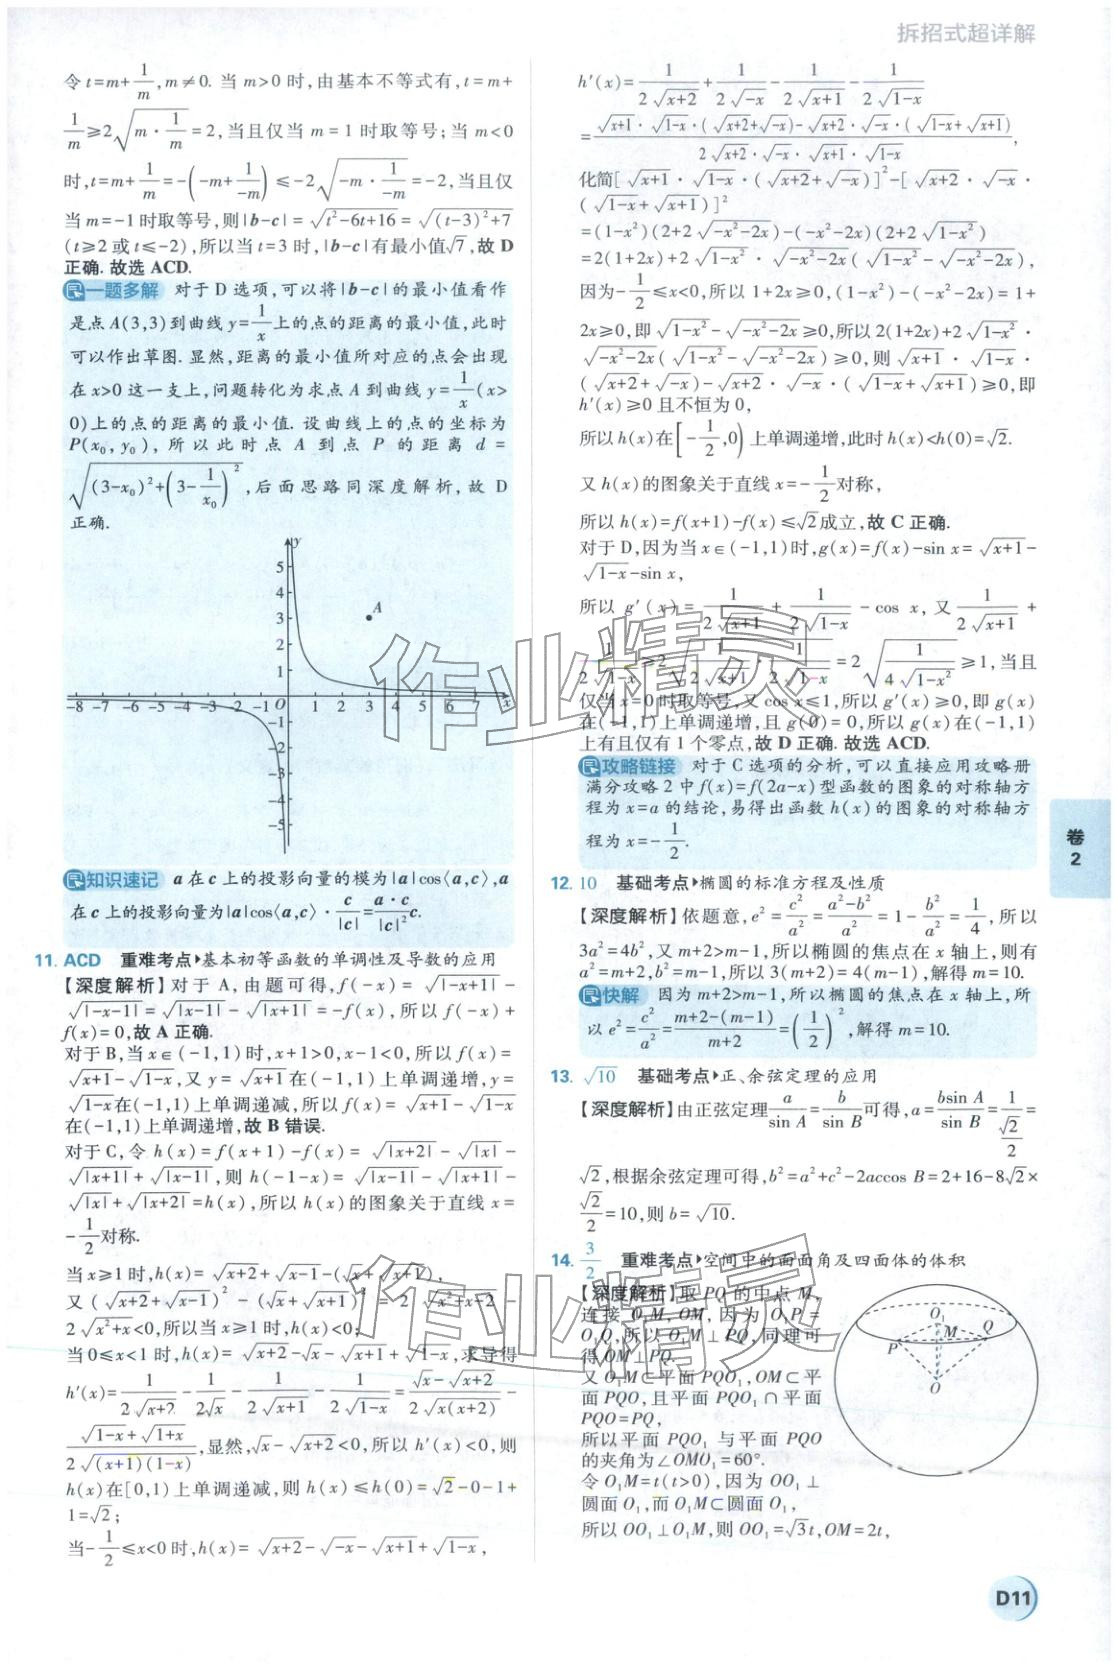 拆招式超详解
令 t=m+1/m, m≠0. 当 m>0 时,由基本不等式有, t=m+
1/m≥2√(m·1/m)=2,当且仅当 m=1 时取等号;当 m<0
时, t=m+1/m=-(-m+1/(-m))≤-2√(-m·1/(-m))=-2,当且仅
当 m=-1 时取等号,则|b-c|=√(t²-6t+16)=√((t-3)²+7)
(t≥2 或 t≤-2),所以当 t=3 时,|b-c|有最小值√7,故 D
正确. 故选 ACD.
一题多解 对于 D 选项,可以将|b-c|的最小值看作
是点 A(3,3)到曲线 y=1/x 上的点的距离的最小值,此时
可以作出草图. 显然,距离的最小值所对应的点会出现
在 x>0 这一支上,问题转化为求点 A 到曲线 y=1/x(x>
0)上的点的距离的最小值. 设曲线上的点的坐标为
P(x₀,y₀),所以此时点 A 到点 P 的距离 d=
√((3-x₀)²+(3-1/x₀)²),后面思路同深度解析,故 D
正确.
y
5
4
3
2
1
A
-8 -7 -6 -5 -4 -3 -2 -1 O 1 2 3 4 5 6 7 x
-1
-2
-3
-4
-5
知识速记 a 在 c 上的投影向量的模为|a|cos⟨a,c⟩, a
在 c 上的投影向量为|a|cos⟨a,c⟩·c/|c|=(a·c/|c|²)c.
11. ACD 重难考点▸基本初等函数的单调性及导数的应用
【深度解析】对于 A,由题可得, f(-x)=√|-x+1|-
√|-x-1|=√|x-1|-√|x+1|=-f(x),所以 f(-x)+
f(x)=0,故 A 正确.
对于 B,当 x∈(-1,1)时, x+1>0, x-1<0,所以 f(x)=
√(x+1)-√(1-x),又 y=√(x+1)在(-1,1)上单调递增, y=
√(1-x)在(-1,1)上单调递减,所以 f(x)=√(x+1)-√(1-x)
在(-1,1)上单调递增,故 B 错误.
对于 C,令 h(x)=f(x+1)-f(x)=√|x+2|-√|x|-
√|x+1|+√|x-1|,则 h(-1-x)=√|x-1|-√|x+1|-
√|x|+√|x+2|=h(x),所以 h(x)的图象关于直线 x=
-1/2对称.
当 x≥1 时, h(x)=√(x+2)+√(x-1)-(√x+√(x+1)),
又(√(x+2)+√(x-1))²-(√x+√(x+1))²=2√(x²+x-2)-
2√(x²+x)<0,所以当 x≥1 时, h(x)<0;
当 0≤x<1 时, h(x)=√(x+2)-√x-√(x+1)+√(1-x),求导得
h′(x)=1/(2√(x+2))-1/(2√x)-1/(2√(x+1))-1/(2√(1-x))=(√x-√(x+2))/(2√(x(x+2)))-
(√(1-x)+√(1+x))/(2√((x+1)(1-x))),显然,√x-√(x+2)<0,所以 h′(x)<0,则
h(x)在[0,1)上单调递减,则 h(x)≤h(0)=√2-0-1+
1=√2;
当-1/2≤x<0 时, h(x)=√(x+2)-√(-x)-√(x+1)+√(1-x),
h′(x)=1/(2√(x+2))+1/(2√(-x))-1/(2√(x+1))-1/(2√(1-x))
=(√(x+1)·√(1-x)·(√(x+2)+√(-x))-√(x+2)·√(-x)·(√(1-x)+√(x+1)))/(2√(x+2)·√(-x)·√(x+1)·√(1-x)),
化简[√(x+1)·√(1-x)·(√(x+2)+√(-x))]²-[√(x+2)·√(-x)·
(√(1-x)+√(x+1))]²
=(1-x²)(2+2√(-x²-2x))-(-x²-2x)(2+2√(1-x²))
=2(1+2x)+2√(1-x²)·√(-x²-2x)(√(1-x²)-√(-x²-2x)),
因为-1/2≤x<0,所以 1+2x≥0,(1-x²)-(-x²-2x)=1+
2x≥0,即√(1-x²)-√(-x²-2x)≥0,所以 2(1+2x)+2√(1-x²)·
√(-x²-2x)(√(1-x²)-√(-x²-2x))≥0,则√(x+1)·√(1-x)·
(√(x+2)+√(-x))-√(x+2)·√(-x)·(√(1-x)+√(x+1))≥0,即
h′(x)≥0 且不恒为 0,
所以 h(x)在[-1/2,0)上单调递增,此时 h(x)<h(0)=√2.
又 h(x)的图象关于直线 x=-1/2对称,
所以 h(x)=f(x+1)-f(x)≤√2成立,故 C 正确.
对于 D,因为当 x∈(-1,1)时, g(x)=f(x)-sin x=√(x+1)-
√(1-x)-sin x,
所以 g′(x)=1/(2√(x+1))+1/(2√(1-x))-cos x,又 1/(2√(x+1))+
1/(2√(1-x))≥2√(1/(2√(x+1))·1/(2√(1-x)))=2√(1/(4√(1-x²)))≥1,当且
仅当 x=0 时取等号,又 cos x≤1,所以 g′(x)≥0,即 g(x)
在(-1,1)上单调递增,且 g(0)=0,所以 g(x)在(-1,1)
上有且仅有 1 个零点,故 D 正确. 故选 ACD.
攻略链接 对于 C 选项的分析,可以直接应用攻略册
满分攻略 2 中 f(x)=f(2a-x)型函数的图象的对称轴方
程为 x=a 的结论,易得出函数 h(x)的图象的对称轴方
程为 x=-1/2.
12. 10 基础考点▸椭圆的标准方程及性质
【深度解析】依题意, e²=c²/a²=(a²-b²)/a²=1-b²/a²=1/4,所以
3a²=4b²,又 m+2>m-1,所以椭圆的焦点在 x 轴上,则有
a²=m+2, b²=m-1,所以 3(m+2)=4(m-1),解得 m=10.
快解 因为 m+2>m-1,所以椭圆的焦点在 x 轴上,所
以 e²=c²/a²=(m+2-(m-1))/(m+2)=(1/2)²,解得 m=10.
13. √10 基础考点▸正、余弦定理的应用
【深度解析】由正弦定理 a/sin A=b/sin B可得, a=bsin A/sin B=1/(√2/2)=
√2,根据余弦定理可得, b²=a²+c²-2accos B=2+16-8√2×
√2/2=10,则 b=√10.
14. 3/2 重难考点▸空间中的面面角及四面体的体积
【深度解析】取 PQ 的中点 M,
连接 O₁M, OM,因为 O₁P=
O₁Q,所以 O₁M⊥PQ,同理可
得 OM⊥PQ.
又 O₁M⊂平面 PQO₁, OM⊂平
面 PQO,且平面 PQO₁∩平面
PQO=PQ,
所以平面 PQO₁ 与平面 PQO
的夹角为∠OMO₁=60°.
令 O₁M=t(t>0),因为 OO₁⊥
圆面 O₁,而 O₁M⊂圆面 O₁,
所以 OO₁⊥O₁M,则 OO₁=√3t, OM=2t,
O₁
M
Q
P
O
卷
2
D11
作业精灵
作业精灵